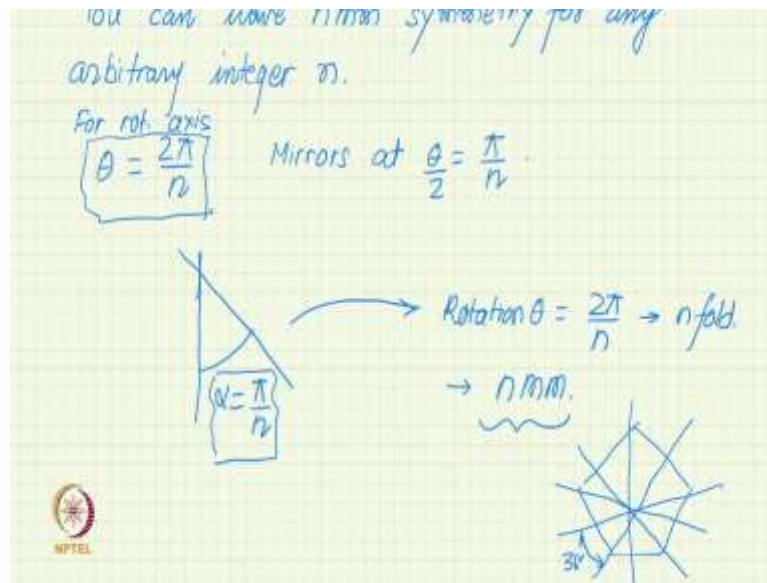 You can have nmm symmetry for any
arbitrary integer n.
For rot. axis
θ = 2π/n Mirrors at θ/2 = π/n.
Rotation θ = 2π/n → n fold.
α = π/n
→ nmm.
36°
NPTEL